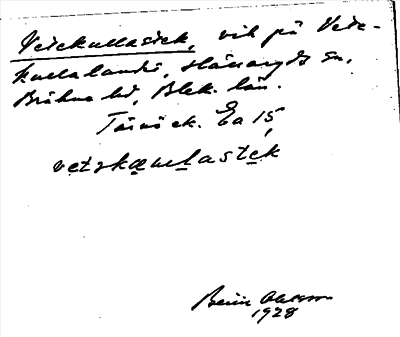 Vetekullastek, vik på Vete-
kullalandi, Hällaryds sn,
Bräkne hd, Blek. län.
Tärnö ek. Ea 15,
vetəkɶɯlastek
Olsson
1928